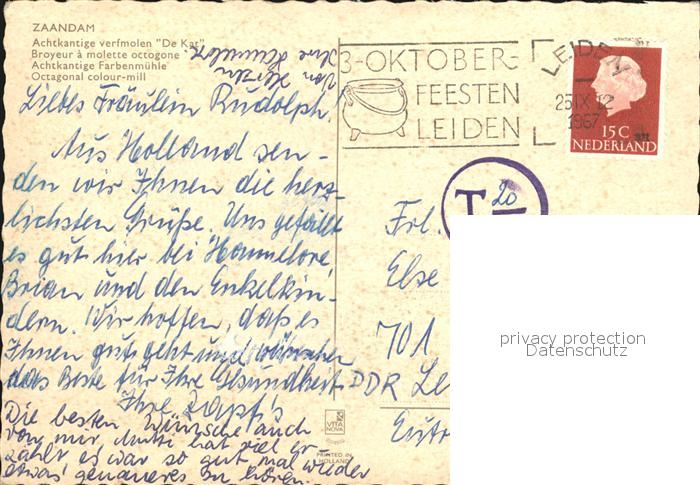 ZAANDAM
Achtkantige verfmolen "De Kat"
Broyeur à molette octogone
Achtkantige Farbenmühle
Octagonal colour-mill
Von Herzen
Ihre Hannelore
Liebes Fräulein Rudolph!
Aus Holland sen-
den wir Ihnen die herz-
lichsten Grüße. Uns gefällt
es gut hier bei Hannelore
Brian und den Enkelkin-
dern. Wir hoffen, daß es
Ihnen gut geht und wünschen
das Beste für Ihre Gesundheit
Ihre Zapf's
Die besten Wünsche auch
von mir. Mutti hat viel er-
zählt es war so gut mal wieder
etwas genaueres zu hören.
3-OKTOBER-
FEESTEN
LEIDEN
LEIDEN
25 IX 12
1967
15 C
NEDERLAND
T 20
Frl.
Else
701
DDR Le
Eutr
VITA
NOVA
PRINTED IN
HOLLAND
privacy protection
Datenschutz